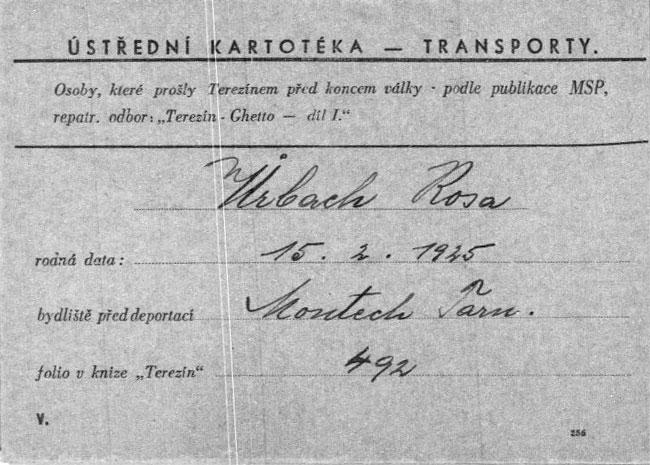 ÚSTŘEDNÍ KARTOTÉKA — TRANSPORTY.
Osoby, které prošly Terezínem před koncem války - podle publikace MSP,
repatr. odbor: „Terezín - Ghetto — díl I."
Urbach Rosa
rodná data: 15. 2. 1925
bydliště před deportací Montech Tarn.
folio v knize „Terezín" 492
V.
256